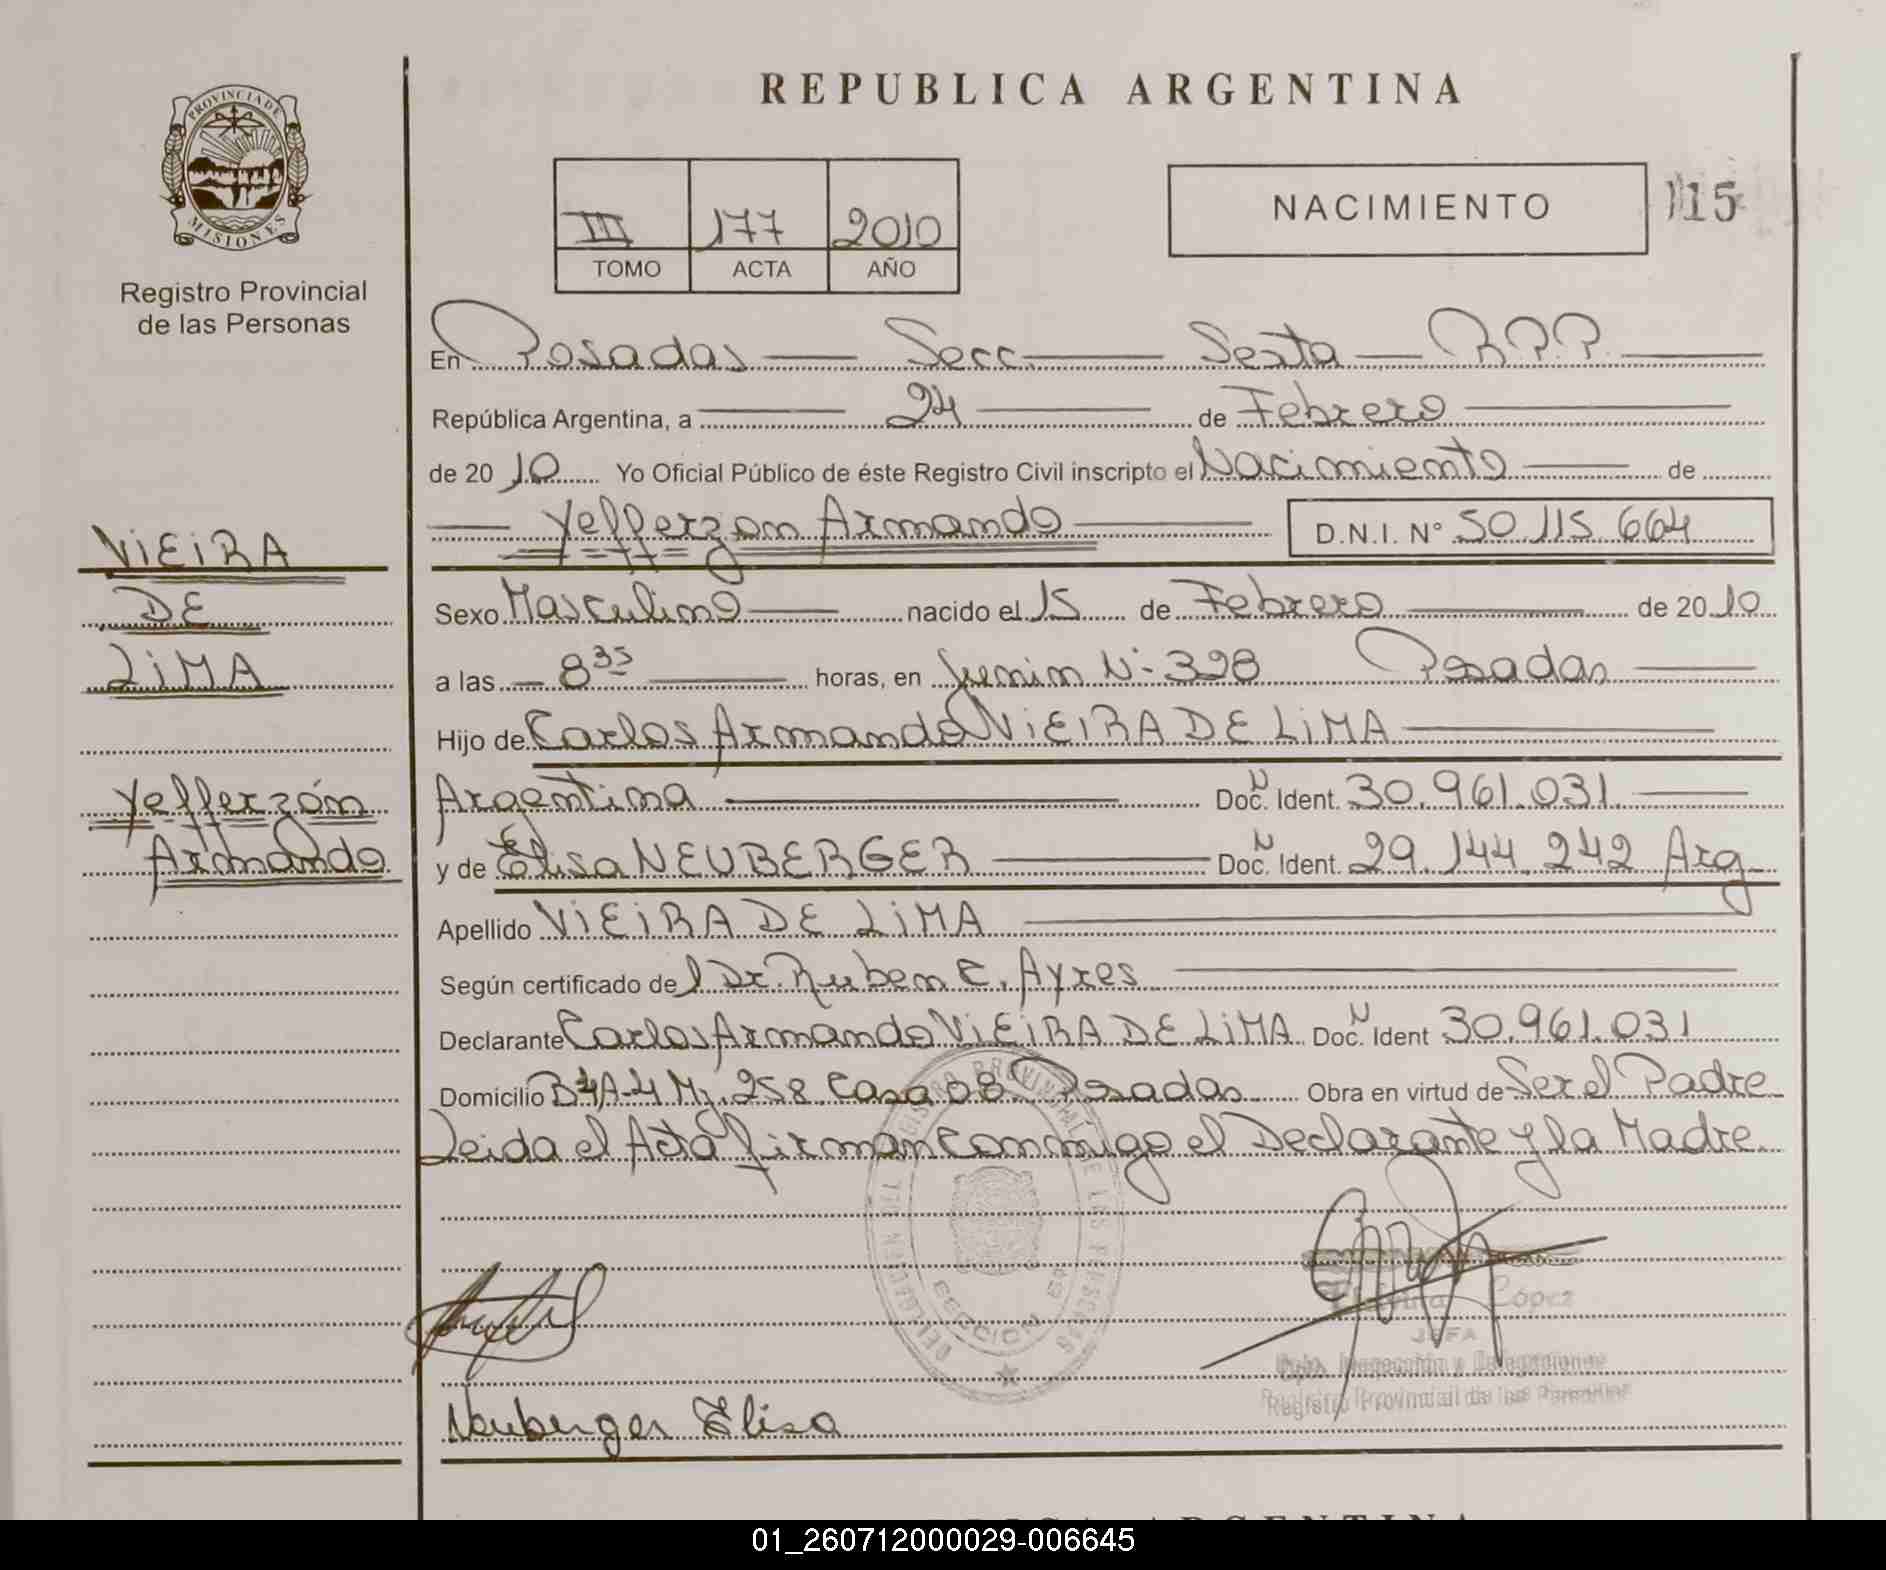 REPUBLICA ARGENTINA
PROVINCIA DE
MISIONES
Registro Provincial
de las Personas
III 177 2010
TOMO ACTA AÑO
NACIMIENTO
115
En Posadas Secc. Sexta R.P.P.
República Argentina, a 24 de Febrero
de 20 10 Yo Oficial Público de éste Registro Civil inscripto el Nacimiento de
Yefferzon Armando D.N.I. Nº 50.115.664
VIEIRA
DE
LIMA
Yefferzón
Armando
Sexo Masculino nacido el 15 de Febrero de 20 10
a las 8 35 horas, en Junin Nº 328 Posadas
Hijo de Carlos Armando VIEIRA DE LIMA
Argentina Doc. N Ident. 30.961.031
y de Elisa NEUBERGER Doc. N Ident. 29.144.242 Arg
Apellido VIEIRA DE LIMA
Según certificado de l Dr. Ruben C. Ayres
Declarante Carlos Armando VIEIRA DE LIMA Doc. N Ident 30.961.031
Domicilio Bº A-4 Mz. 258 Casa 08 Posadas Obra en virtud de Ser el Padre
Leida el Acta firman conmigo el Declarante y la Madre.
REGISTRO PROVINCIAL DE LAS PERSONAS
DELEGACION
SECCION 6ª
López
JEFA
Dpto. Inspección y Delegaciones
Registro Provincial de las Personas
Neuberger Elisa
REPUBLICA ARGENTINA
01_260712000029-006645